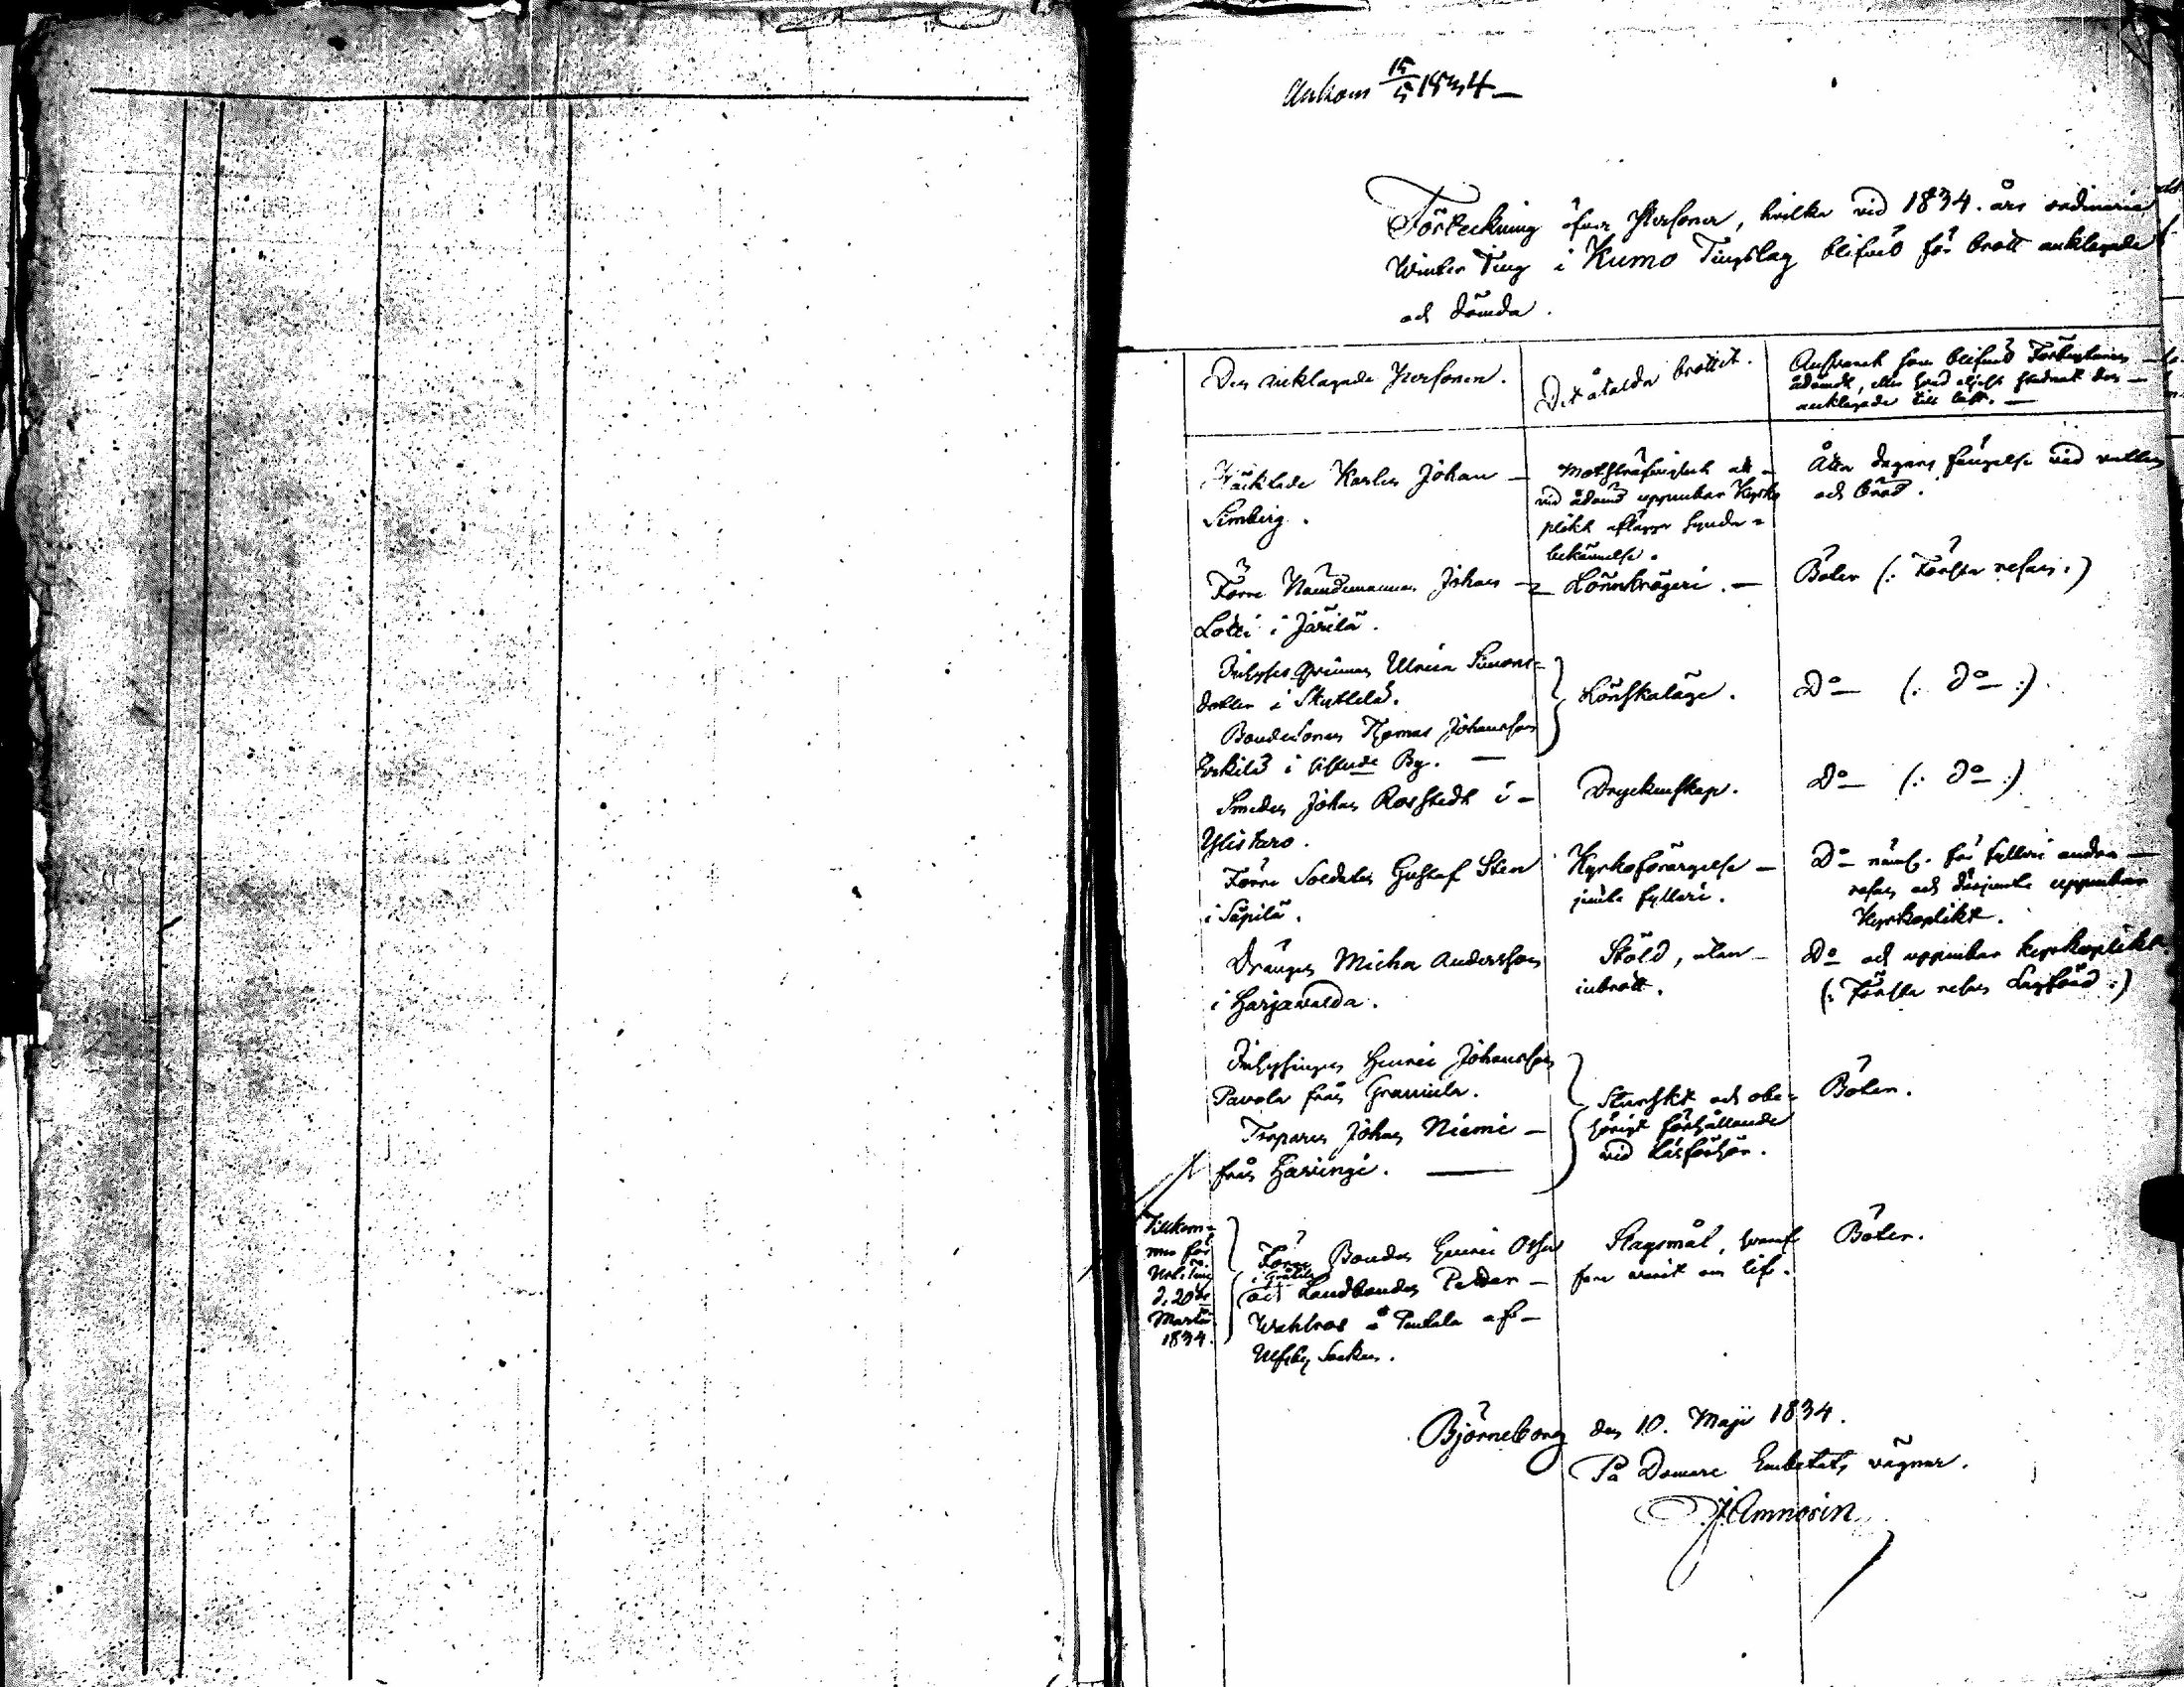 Ankom 15/5 1834
Förteckning öfver Personer, hvilka vid 1834. års ordinarie
Winter Ting i Kumo Tingslag blifvit för brott anklagade
och dömda.
Den anklagade Personen.
Det åtalda brottet.
Answaret som blifvit Förbrytaren
ådömdt, eller hvad eljest händt den
anklagade till last.
Häktade Karlen Johan
Simberg.
Motsträfvighet att
vid ådömd uppenbar Kyrko
plikt aflägga synda-
bekännelse.
Åtta dagars fängelse vid vatten
och bröd.
Förre Nämndemannen Johan
Lotti i Järilä.
Lönnkrögeri.
Böter (: Första resan :)
Inhyses qvinnan Ulrica Simons-
dotter i Skyttelä.
Bondesonen Thomas Johansson
Erkilä i sistnde By.
Lönskaläge.
Do (: do :)
Smeden Johan Rosstedt i
Ylistaro.
Dryckenskap.
Do (: do :)
Förre Soldaten Gustaf Sten
i Säpilä.
Kyrkoförargelse
jemte fylleri.
Do näml. för fylleri andra
resan och dessjemte uppenbar
Kyrkoplikt.
Drängen Micha Andersson
i Harjavalda.
Stöld, utan
inbrott.
Do och uppenbar kyrkoplikt
(: Första resan Lagförd :)
Inhysingen Henric Johansson
Pavola från Gramula.
Torparen Johan Niemi
från Havingi.
Sturskt och obe-
hörigt förhållande
vid Läsförhör.
Böter.
Tillkom-
men för
Urt. Ting
d. 20de
Martii
1834.
Förre Bonden Henric
och Landbonden Petter
Wahlroos å af
Ulfsby Socken.
Slagsmål, hvaraf
fara warit om lif.
Böter.
Björneborg den 10. Maji 1834.
På Domare Embetets vägnar.
J. Amnorin